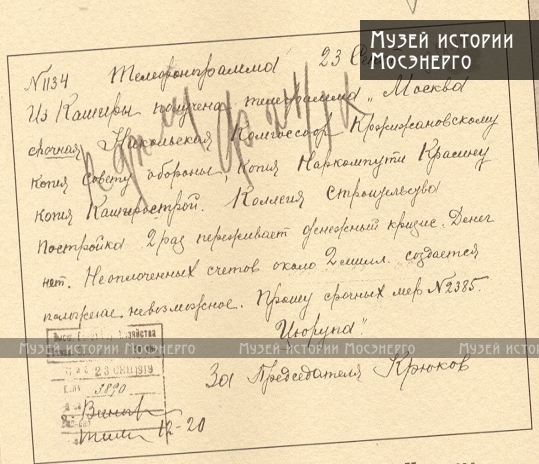 Музей истории
Мосэнерго
№1134 Телефонограмма 23 Сен
Из Каширы получена телеграмма „Москва
срочная Никольская Комгоссоор Кржижановскому
копия Совету обороны, копия Наркомпути Красину
копия Каширострой. Коллегия строительства
Постройка 2 раз переживает денежный кризис. Денег
нет. Неоплоченных счетов около 2 милл. создается
положение невозможное. Прошу срочных мер №2385.
Цюрупа"
Музей истории Мосэнерго Музей истории Мосэнерго
За Председателя Крюков
23 СЕН 1919
5890
12-20